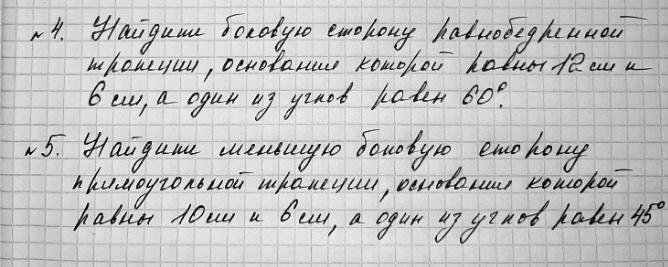 №4. Найдите боковую сторону равнобедренной
трапеции, основания которой равны 12 см и
6 см, а один из углов равен 60°.
№5. Найдите меньшую боковую сторону
прямоугольной трапеции, основания которой
равны 10 см и 6 см, а один из углов равен 45°